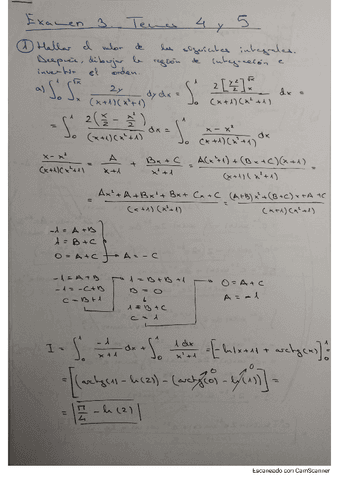 Examen 3 Temas 4 y 5
① Hallar el valor de las siguientes integrales.
Después, dibujar la región de integración e
invertir el orden.
a) ∫₀¹ ∫ₓ^√x 2y/((x+1)(x²+1)) dy dx = ∫₀¹ 2[y²/2]ₓ^√x/((x+1)(x²+1)) dx =
= ∫₀¹ 2(x/2 - x²/2)/((x+1)(x²+1)) dx = ∫₀¹ (x-x²)/((x+1)(x²+1)) dx
(x-x²)/((x+1)(x²+1)) = A/(x+1) + (Bx+C)/(x²+1) = (A(x²+1)+(Bx+C)(x+1))/((x+1)(x²+1)) =
= (Ax²+A+Bx²+Bx+Cx+C)/((x+1)(x²+1)) = ((A+B)x²+(B+C)x+A+C)/((x+1)(x²+1))
-1 = A+B
1 = B+C
0 = A+C → A = -C
-1 = A+B 1 = B+B+1 0 = A+C
-1 = -C+B B = 0 A = -1
C = B+1 1 = B+C
C = 1
I = ∫₀¹ -1/(x+1) dx + ∫₀¹ 1dx/(x²+1) = [-ln|x+1| + arctg(x)]₀¹ =
= [(arctg(1) - ln(2)) - (arctg(0) - ln(1))] =
= π/4 - ln(2)
Escaneado con CamScanner